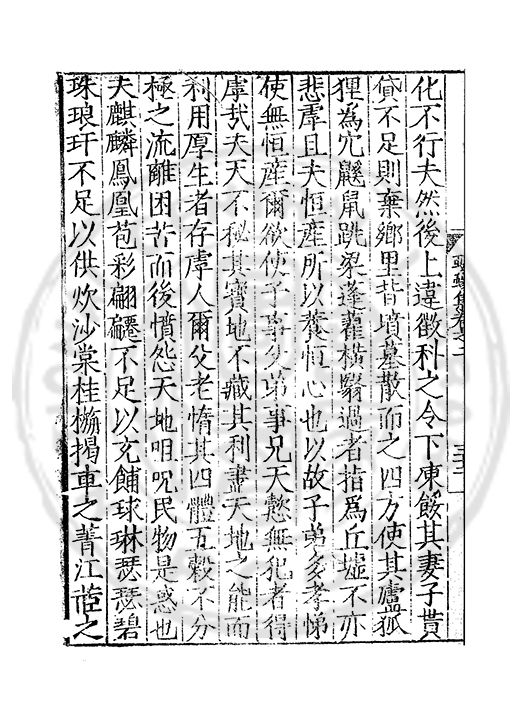 化不行夫然後上違徵科之令下凍餒其妻子貰
貸不足則棄鄉里背墳墓散而之四方使其廬狐
狸爲穴鼷鼠跳梁蓬藋橫翳過者指爲丘墟不亦
悲虖且夫恒産所以養恒心也以故子弟多孝悌
使無恒産爾欲使子事父弟事兄天憗無犯者得
虖哉夫天不秘其寶地不藏其利盡天地之能而
利用厚生者存虖人爾父老惰其四體五穀不分
極之流離困苦而後憤怨天地咀呪民物是惑也
夫麒麟鳳凰苞彩翩䙴不足以充餔球琳瑟瑟碧
珠琅玕不足以供炊沙棠桂櫾揭車之菁江蓠之
集卷之一